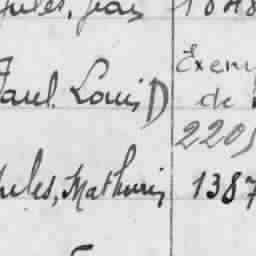 Jules, Jean 1848
Paul Louis D Exem
de
2205
Jules, Mathurin 1387